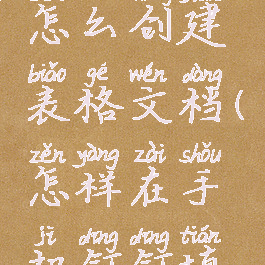 怎么创建
biǎo gé wén dàng
表格文档(
zěn yàng zài shǒu
怎样在手
jī dīng dīng tián
机钉钉填